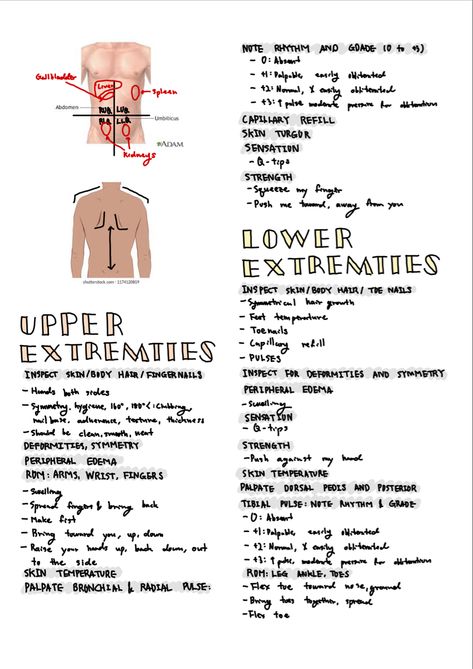 Gallbladder
Liver
Spleen
Abdomen
RUQ LUQ
RLQ LLQ
Umbilicus
Kidneys
ADAM
shutterstock.com · 1174120819
UPPER
EXTREMTIES
INSPECT SKIN/BODY HAIR/FINGERNAILS
- Hands both sides
- Symmetry, hygiene, 160°, 180°<: clubbing,
nail base, adherence, texture, thickness
- Should be clean, smooth, neat
DEFORMITIES, SYMMETRY
PERIPHERAL EDEMA
ROM: ARMS, WRIST, FINGERS
- Swelling
- Spread fingers & bring back
- Make fist
- Bring toward you, up, down
- Raise your hands up, back down, out
to the side
SKIN TEMPERATURE
PALPATE BRONCHIAL & RADIAL PULSE:
NOTE RHYTHM AND GRADE (0 to +3)
- 0: Absent
- +1: Palpable, easily obliterated
- +2: Normal, X easily obliterated
- +3: ↑ pulse moderate pressure for obliteration
CAPILLARY REFILL
SKIN TURGOR
SENSATION
- Q-tips
STRENGTH
- Squeeze my finger
- Push me toward, away from you
LOWER
EXTREMTIES
INSPECT SKIN/BODY HAIR/ TOE NAILS
- Symmetrical hair growth
- Feet temperature
- Toenails
- Capillary refill
- PULSES
INSPECT FOR DEFORMITIES AND SYMMETRY
PERIPHERAL EDEMA
- Swelling
SENSATION
- Q-tips
STRENGTH
- Push against my hand
SKIN TEMPERATURE
PALPATE DORSAL PEDIS AND POSTERIOR
TIBIAL PULSE: NOTE RHYTHM & GRADE
- 0: Absent
- +1: Palpable, easily obliterated
- +2: Normal, X easily obliterated
- +3: ↑ pulse, moderate pressure for obliteration
ROM: LEG ANKLE, TOES
- Flex toe toward nose, ground
- Bring toes together, spread
- Flex toe